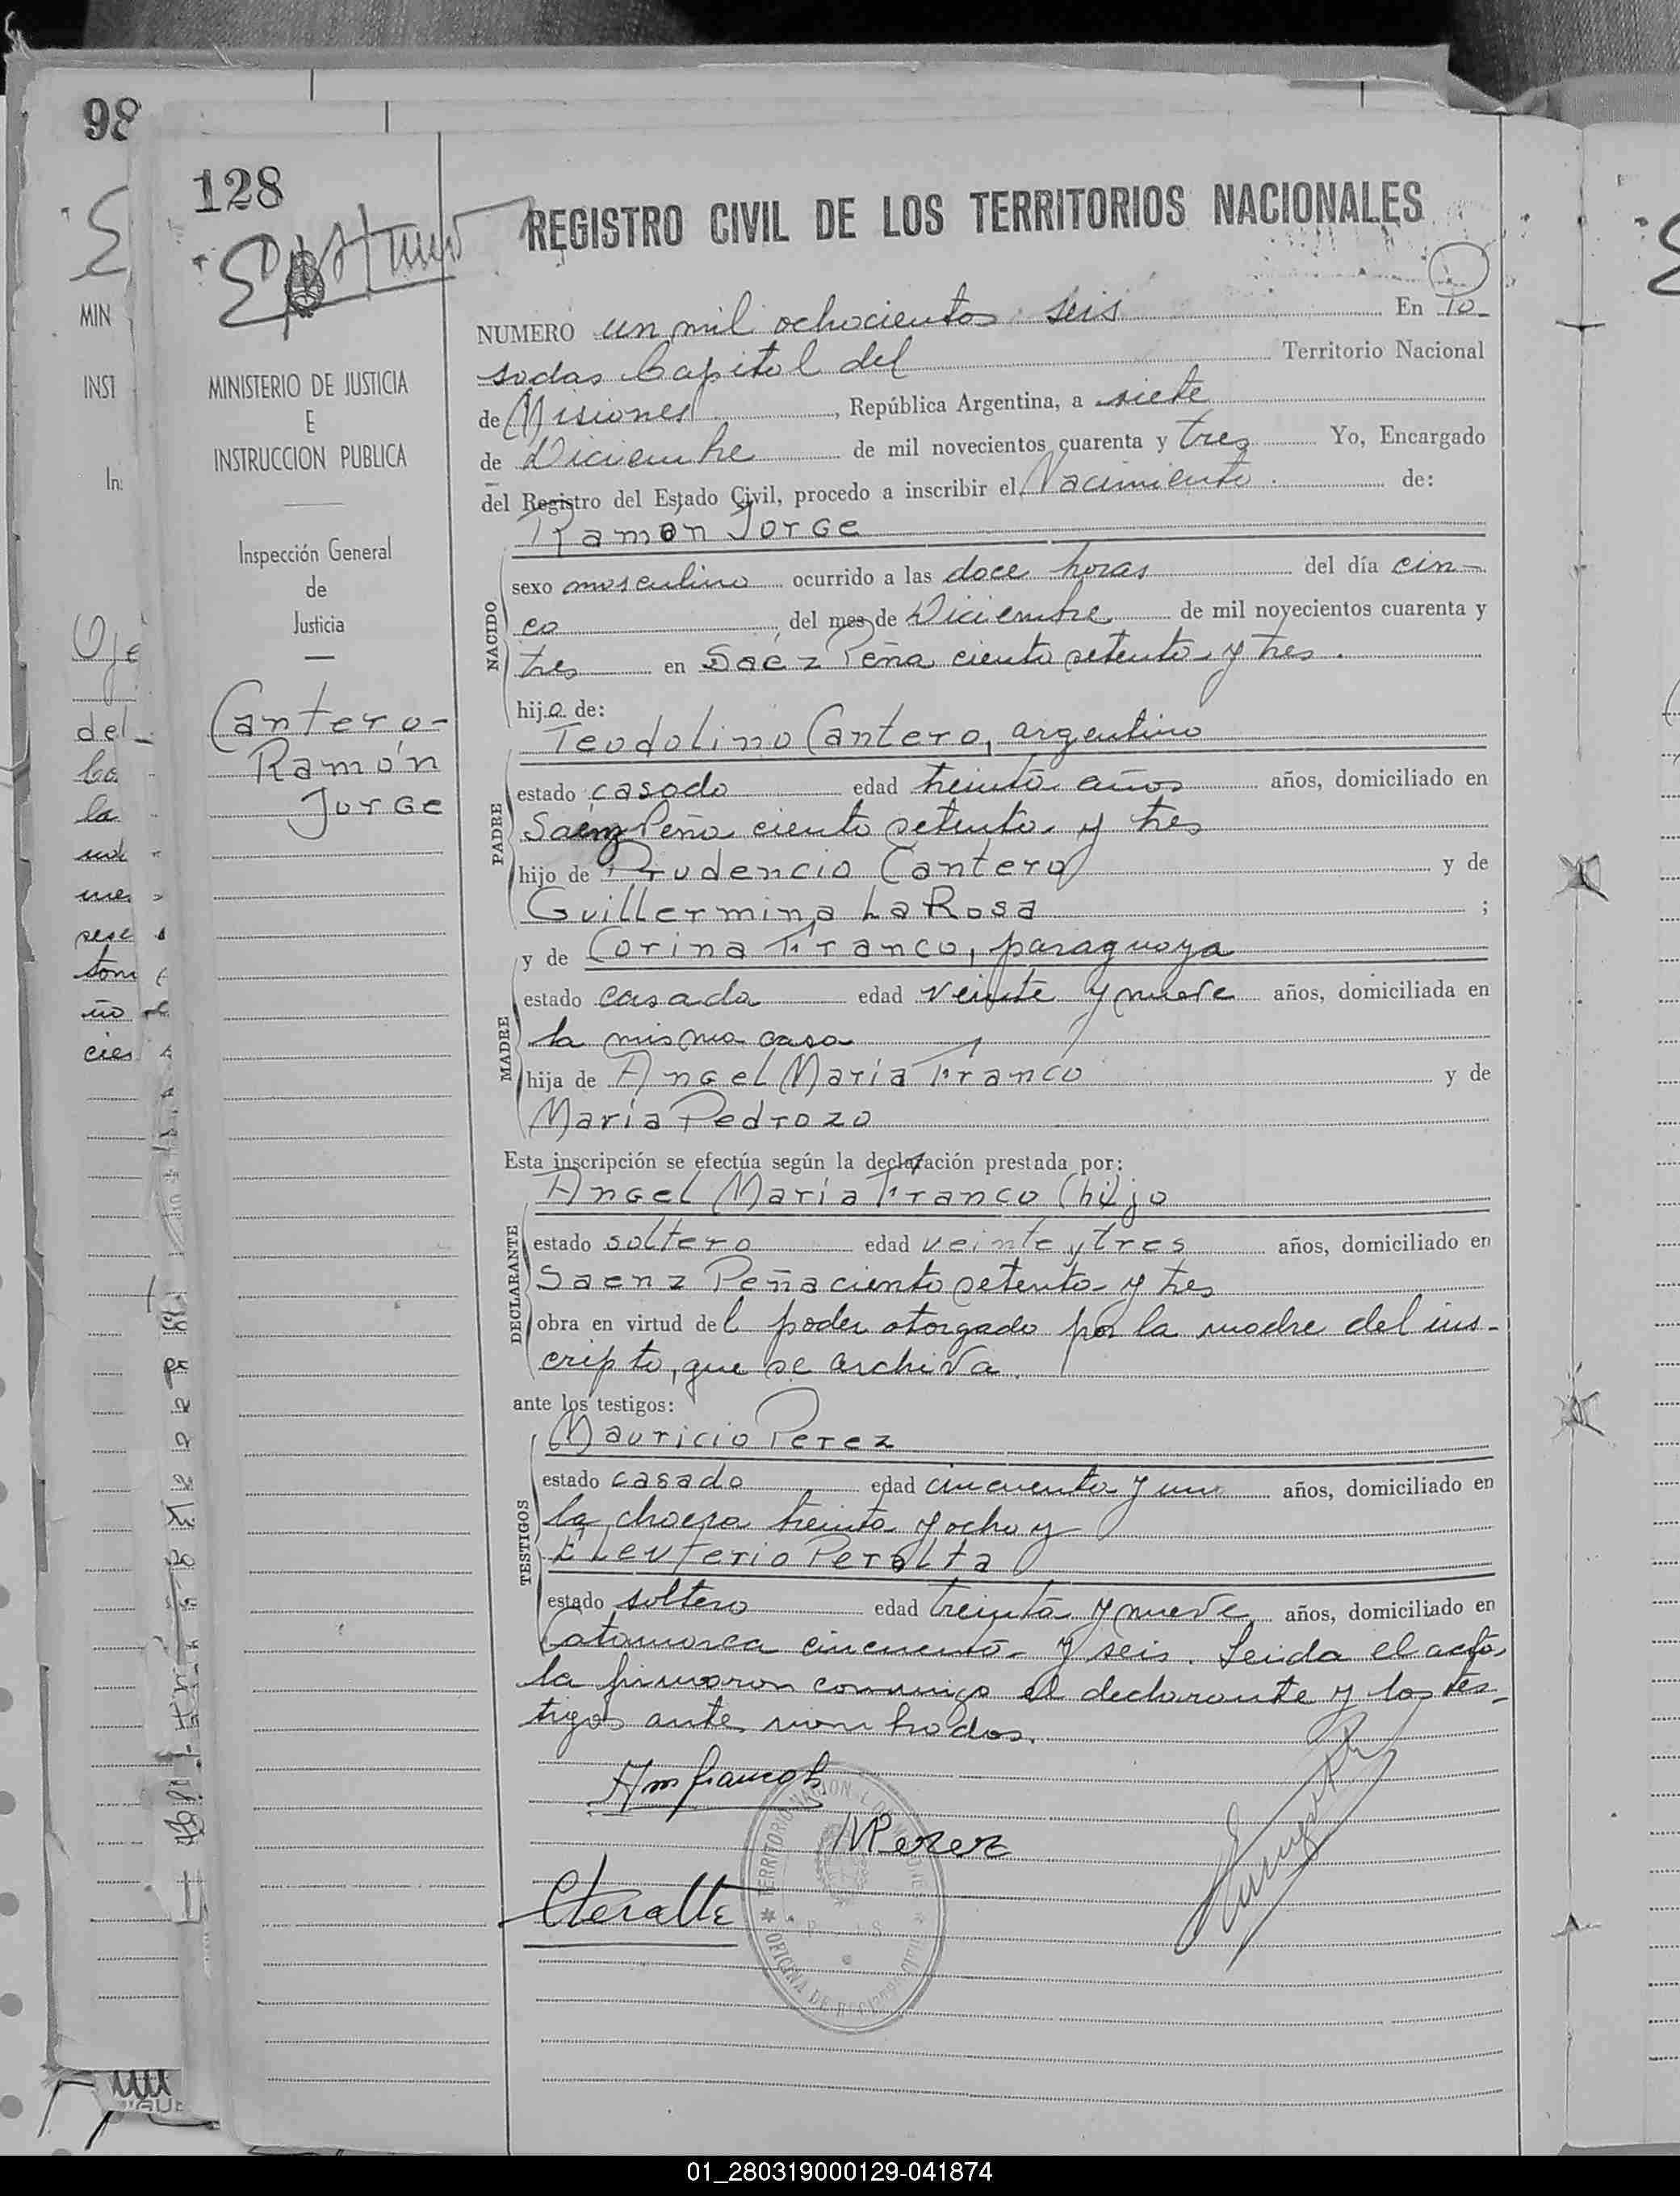 98
128
REGISTRO CIVIL DE LOS TERRITORIOS NACIONALES
MIN
INST
In:
MINISTERIO DE JUSTICIA
E
INSTRUCCION PUBLICA
Inspección General
de
Justicia
Cantero-
Ramón
Jorge
NUMERO un mil ochocientos seis En Po-
sadas Capital del Territorio Nacional
de Misiones, República Argentina, a siete
de Diciembre de mil novecientos cuarenta y tres Yo, Encargado
del Registro del Estado Civil, procedo a inscribir el Nacimiento. de:
Ramón Jorge
NACIDO
sexo masculino ocurrido a las doce horas del día cin-
co del mes de Diciembre de mil novecientos cuarenta y
tres en Saéz Peña ciento setenta y tres.
hijo de:
Teodolino Cantero, argentino
PADRE
estado casado edad treinta años años, domiciliado en
Saenz Peña ciento setenta y tres
hijo de Prudencio Cantero y de
Guillermina La Rosa ;
y de Corina Franco, paraguaya
MADRE
estado casada edad veinte y nueve años, domiciliada en
la misma casa
hija de Angel María Franco y de
María Pedrozo
Esta inscripción se efectúa según la declaración prestada por:
Angel María Franco (hijo
DECLARANTE
estado soltero edad veinte y tres años, domiciliado en
Saenz Peña ciento setenta y tres
obra en virtud del poder otorgado por la madre del ins-
cripto, que se archiva.
ante los testigos:
Mauricio Perez
TESTIGOS
estado casado edad cincuenta y uno años, domiciliado en
la chacra treinta y ocho y
Eleuterio Peralta
estado soltero edad treinta y nueve años, domiciliado en
Catamarca cincuenta y seis. Leida el acta,
la firmaron conmigo el declarante y los tes-
tigos ante nombrados.
Am franco h
MPerez
EPeralta
01_280319000129-041874